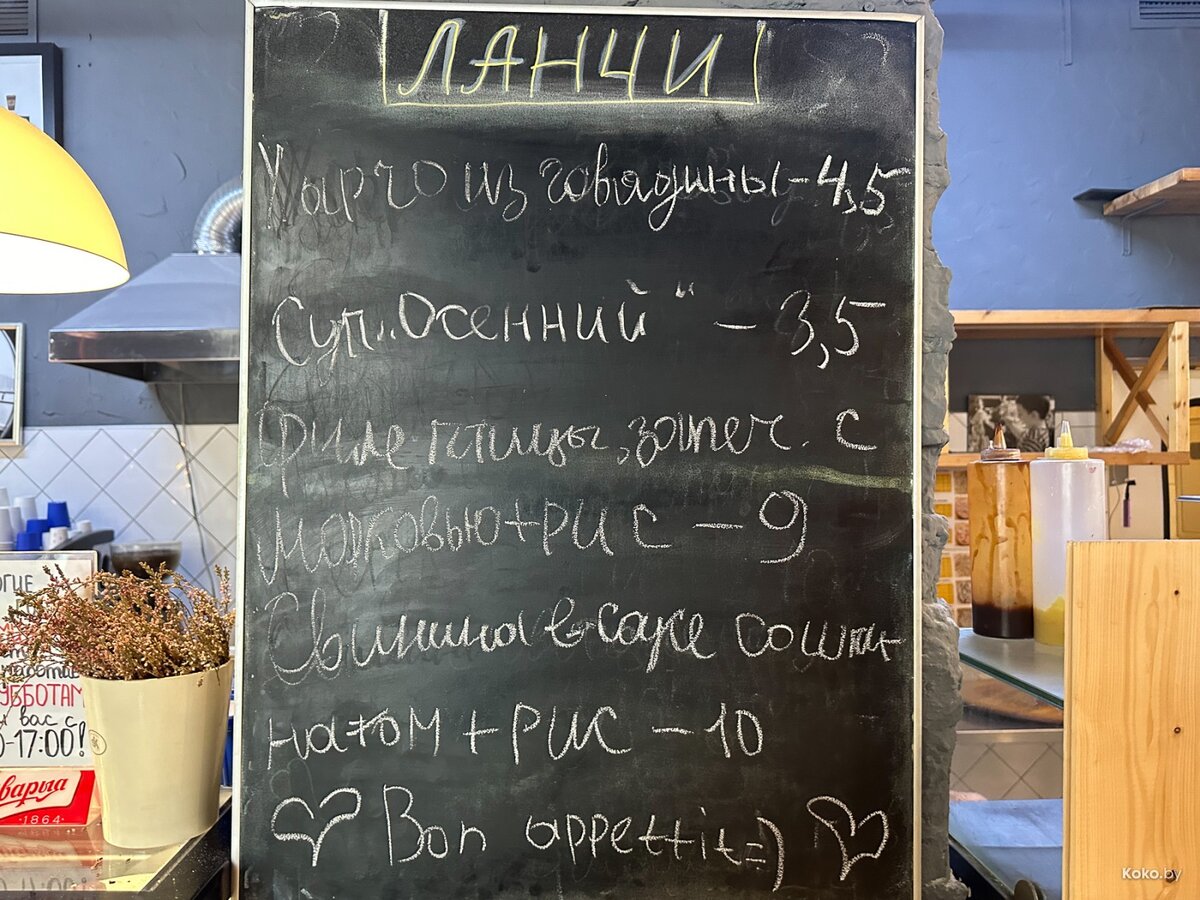 ЛАНЧИ
Харчо из говядины - 4,5
Суп „Осенний“ - 3,5
Филе птицы, запеч. с
морковью + рис - 9
Свинина в соусе со шпи-
натом + рис - 10
Bon appettit =)
УББОТАМ
вас с
0-17:00!
варыа
·1864·
Koko.by